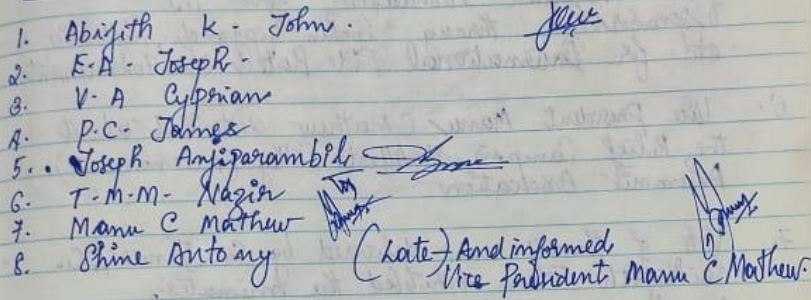 1. Abijith K. John.
2. E.A. Joseph.
3. V.A Cyprian
4. P.C. James
5. Joseph Anjiparambil
6. T.M.M. Nazir
7. Manu C Mathew
8. Shine Antony (Late) And informed
Vice President Manu C Mathew.